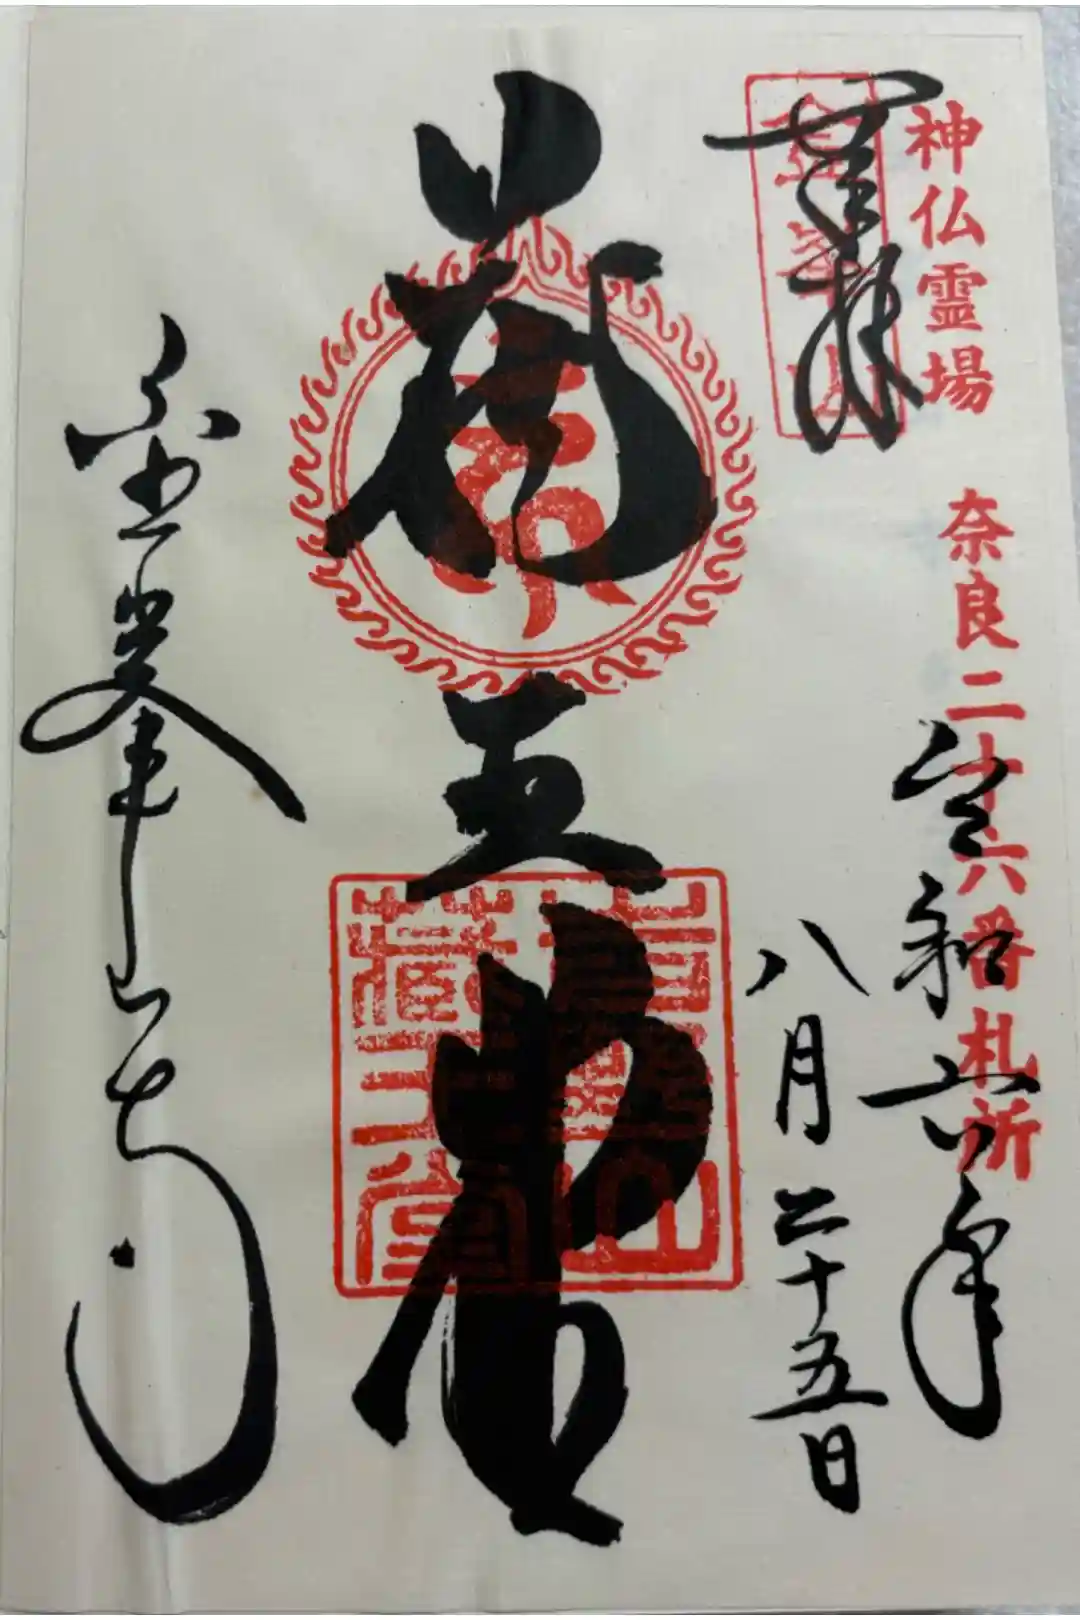 神仏霊場 奈良二十六番札所
奉拝
金峯山
令和六年
八月二十五日
蔵王堂
金峯山寺